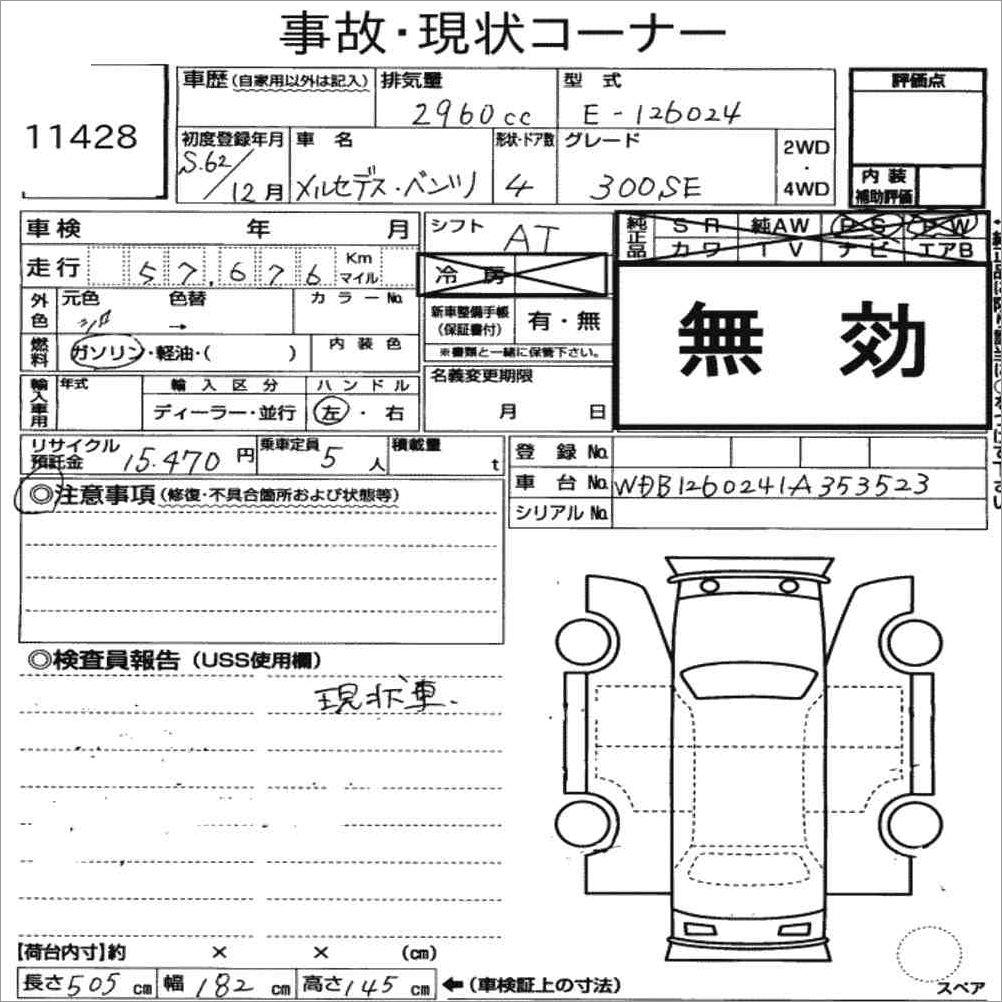 事故・現状コーナー
11428
車歴(自家用以外は記入) 排気量 型式 評価点
2960cc E-126024
初度登録年月 車名 形状・ドア数 グレード 2WD・4WD
S.62/12月 メルセデス・ベンツ 4 300SE
内装補助評価
車検 年 月 シフト AT
純正品 SR 純AW PS PW
カワ TV ナビ エアB
走行 57,676 Km マイル
冷房
無効
外色 元色 色替 カラーNo.
→
新車整備手帳(保証書付) 有・無
※書類と一緒に保管下さい。
燃料 ガソリン・軽油・( ) 内装色
輸入車用 年式 輸入区分 ハンドル
ディーラー・並行 左・右
名義変更期限
月 日
リサイクル預託金 15.470円 乗車定員 5人 積載量 t
登録No.
車台No. WDB1260241A353523
シリアルNo.
◎注意事項(修復・不具合箇所および状態等)
◎検査員報告(USS使用欄)
現状車.
【荷台内寸】約 × × (cm)
長さ505cm 幅182cm 高さ145cm ←(車検証上の寸法)
スペア